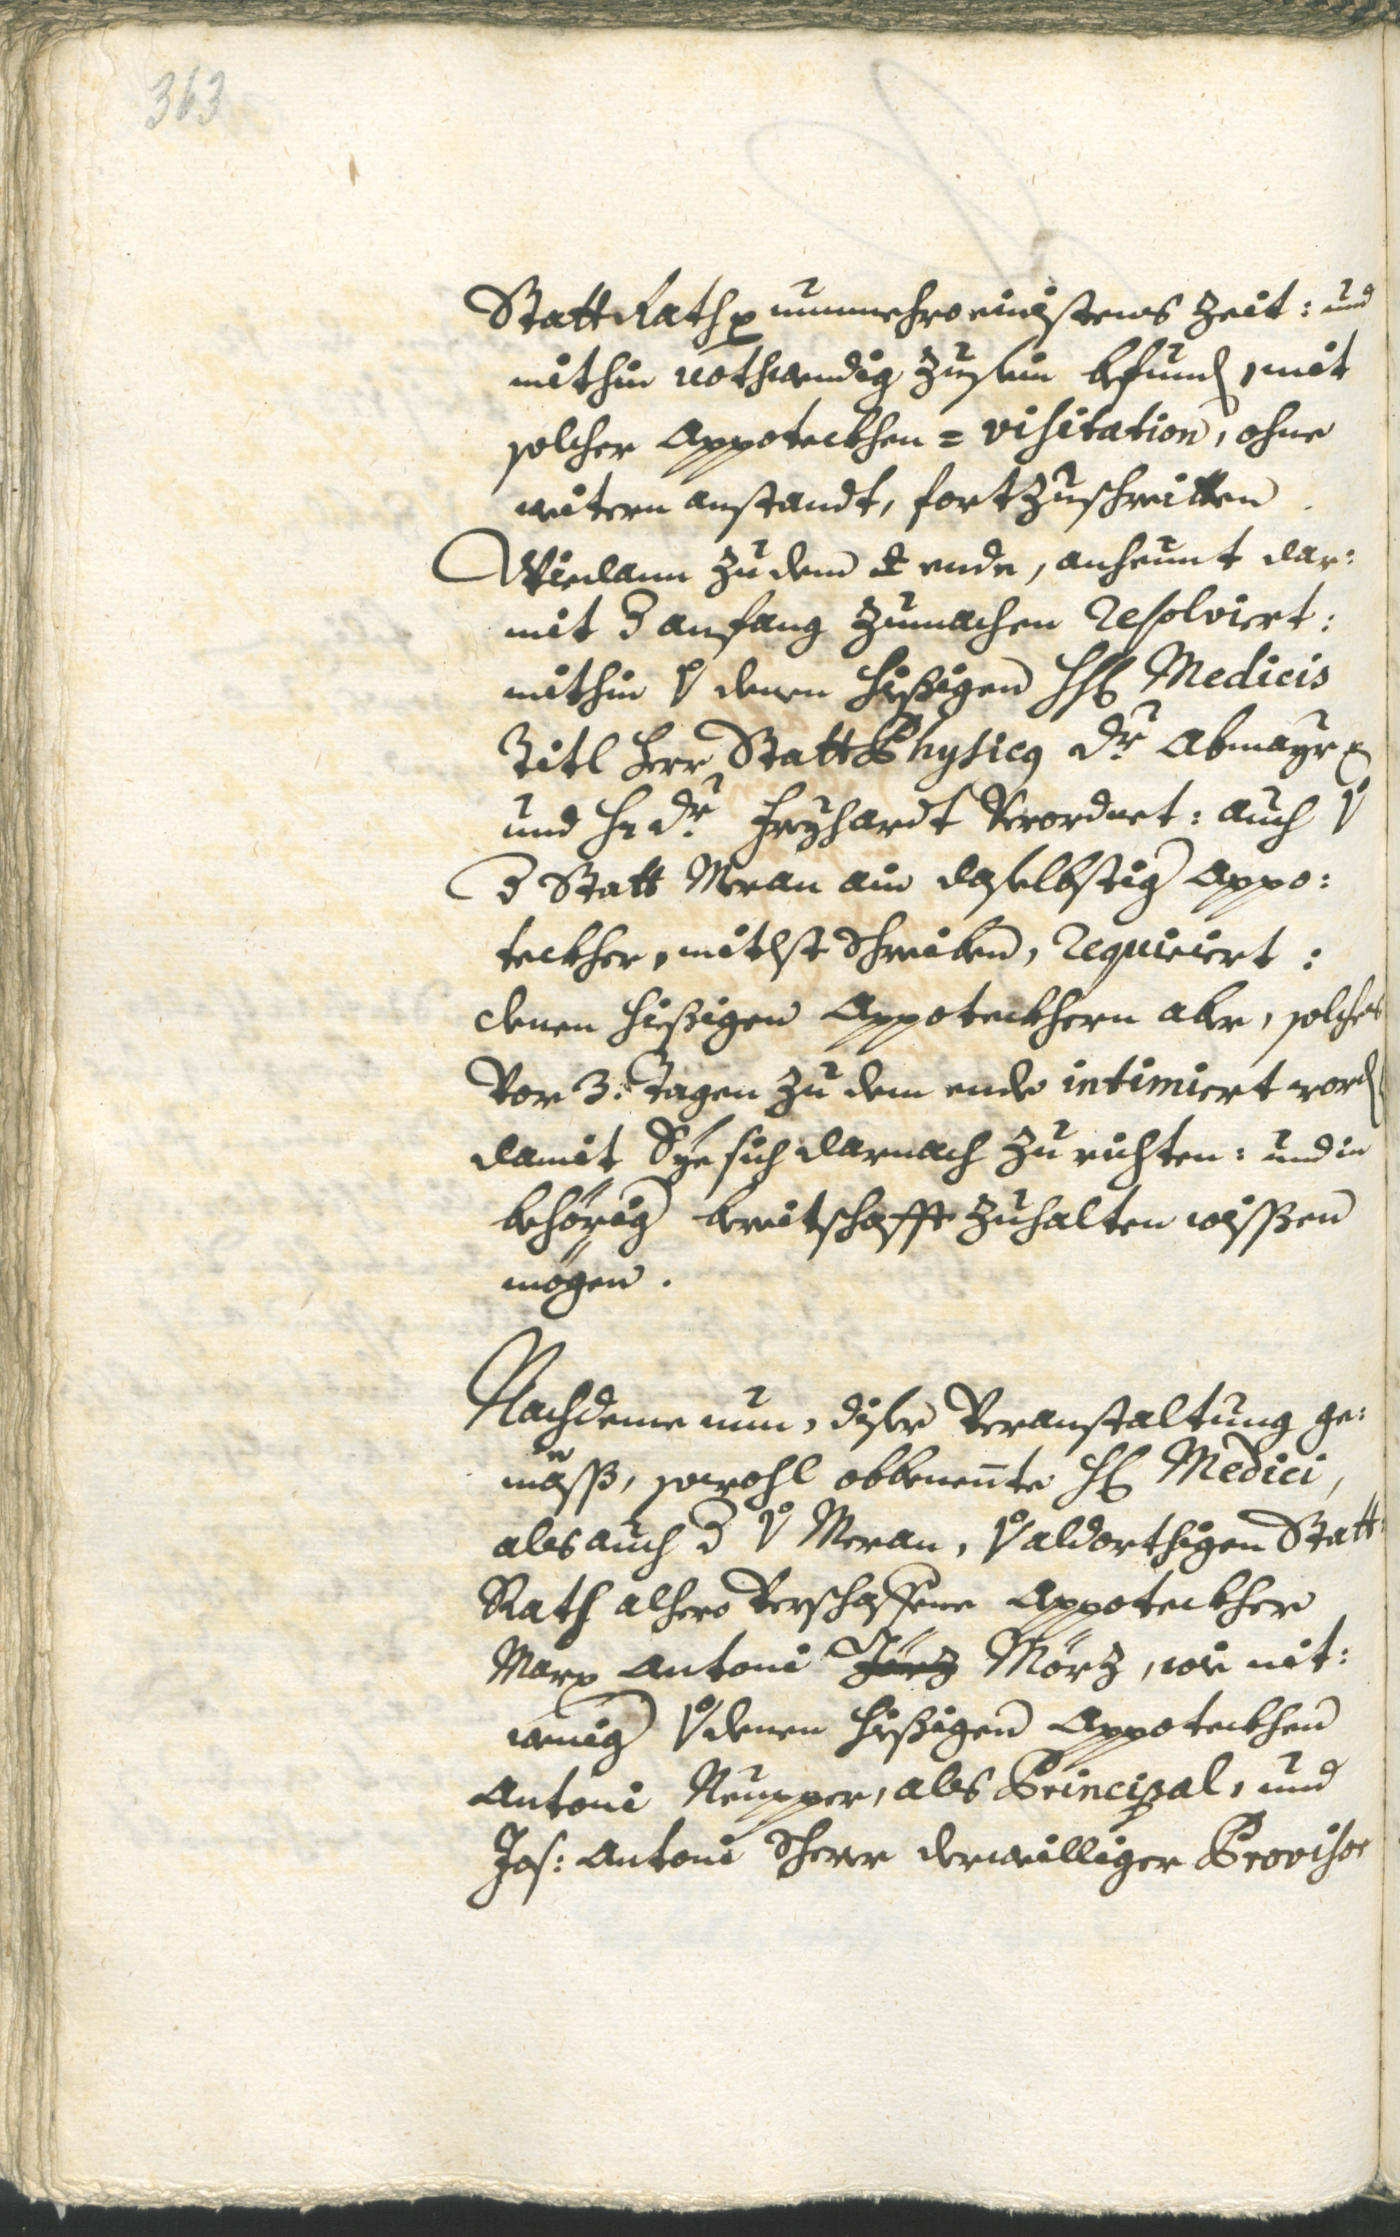 363
Statt Rath nunmehro einistens Zeit: und
mithin nothwendig zusein befund, mit
solcher Appoteckhen = visitation, ohne
weitern anstandt, fortzuschreitten.
Wiedann zu dem ende, anheunt dar:
mit d anfang zumachen resolviert:
mithin v denen hießigen HH Medicis
Titl Herr Statt Physicus Dr Abmayr
und Hr Dr Freyhardt Verordnet: auch v
d Statt Meran ain daselbstig Appo:
teckher, mitlst Schreiben, requiriert:
denen hießigen Appoteckhern aber, solches
Vor 3: Tagen zu dem ende intimiert word
damit Sye sich darnach zu richten: und in
behörig bereitschafft zuhalten wissen
mögen.
Nachdeme nun, diser Veranstaltung ge:
mäß, sowohl obbenente HH Medici,
als auch d v Meran, v aldorthigen Statt
Rath alhero Verschaffene Appoteckher
Marx Antoni Mörz, wie nit:
wenig v denen hießigen Appoteckhen
Antoni Neupper, als Principal, und
Jos: Antoni Scherer derweilliger Provisor